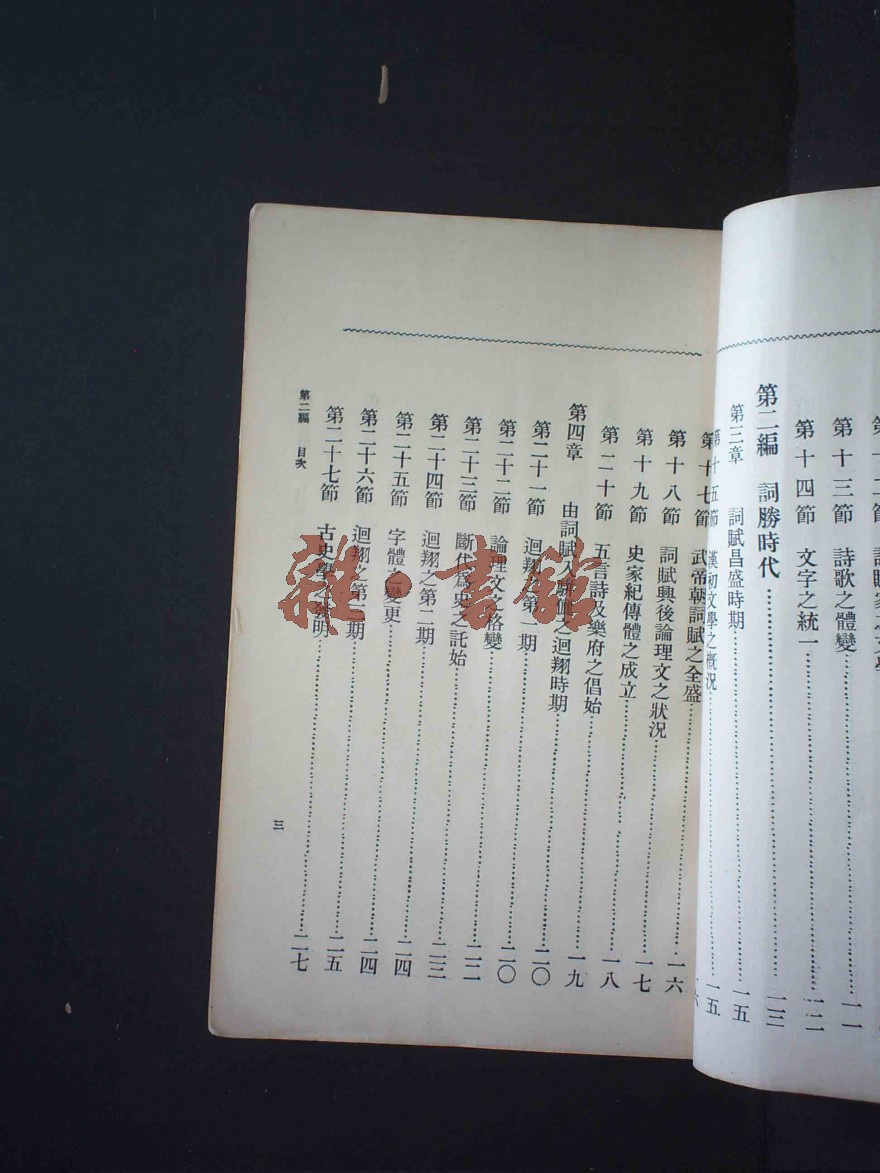 第十三節 詩歌之體變…………一一
第十四節 文字之統一…………一二
第二編 詞勝時代…………一三
第三章 詞賦昌盛時期…………一五
第十五節 漢初文學之概況…………一五
六
第十七節 武帝朝詞賦之全盛…………一六
第十八節 詞賦興後論理文之狀況…………一七
第十九節 史家紀傳體之成立…………一八
第二十節 五言詩及樂府之倡始…………一九
第四章 由詞賦入駢儷之迴翔時期…………二〇
第二十一節 迴翔之第一期…………二〇
第二十二節 論理文之格變…………二二
第二十三節 斷代為史之託始…………二三
第二十四節 迴翔之第二期…………二四
第二十五節 字體之變更…………二四
第二十六節 迴翔之第三期…………二五
第二十七節 古史學之發明…………二七
第二編 目次
三
雜·書館